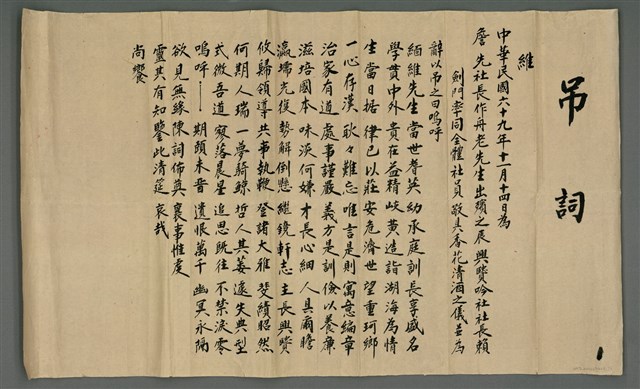 吊詞
維
中華民國六十九年十一月十四日為
詹先社長作舟老先生出殯之辰興賢吟社社長賴
劍門率同全體社員敬具香花清酒之儀並為
辭以吊之曰嗚呼
緬維先生當世耆英幼承庭訓長享盛名
學貫中外貴在益精岐黃造詣湖海為情
生當日据律己以莊安危濟世望重珂鄉
一心存漢耿々難忘唯言是則寓意編章
治家有道處事謹嚴義方是訓儉以養廉
滋培國本味淡何嫌才長心細人具爾瞻
瀛壖光復勢解倒懸繼鏡軒志主長興賢
攸歸領導共事執鞭登緒大雅斐績昭然
何期人瑞一夢騎鯨哲人其萎遽失典型
式微吾道寥落晨星追思既往不禁淚零
嗚呼期頤未晋遺恨萬千幽冥永隔
欲見無緣陳詞佈奠襄事惟虔
靈其有知鑒此清筵哀哉
尚饗